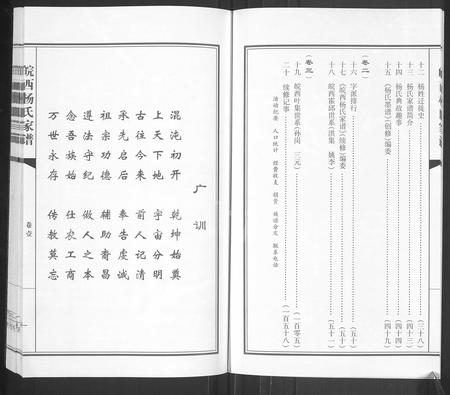 十二 杨姓迁徙史……(三十八)
十三 杨氏家谱简介……(四十三)
十四 杨氏典故趣事……(四十四)
十五 《杨氏墨谱》(创修)编委……(四十九)
(卷二)
十六 字派排行……(五十)
十七 《皖西杨氏家谱》(续修)编委……(五十)
十八 皖西霍邱世系(洪集 姚李)……(五十一)
(卷三)
十九 皖西叶集世系(孙岗 三元)……(一百零五)
二十 续修记事……(一百五十八)
活动纪要 人口统计 经费收支 捐资 族谱分发 联系电话
广训
混沌初开 乾坤始奠
上天下地 宇宙分明
古往今来 前人记清
承先启后 奉告虔诚
祖宗功德 辅助裔昌
遵法守纪 做人之本
念吾族始 仕农工商
万世永存 传教莫忘
皖西杨氏家谱
卷壹